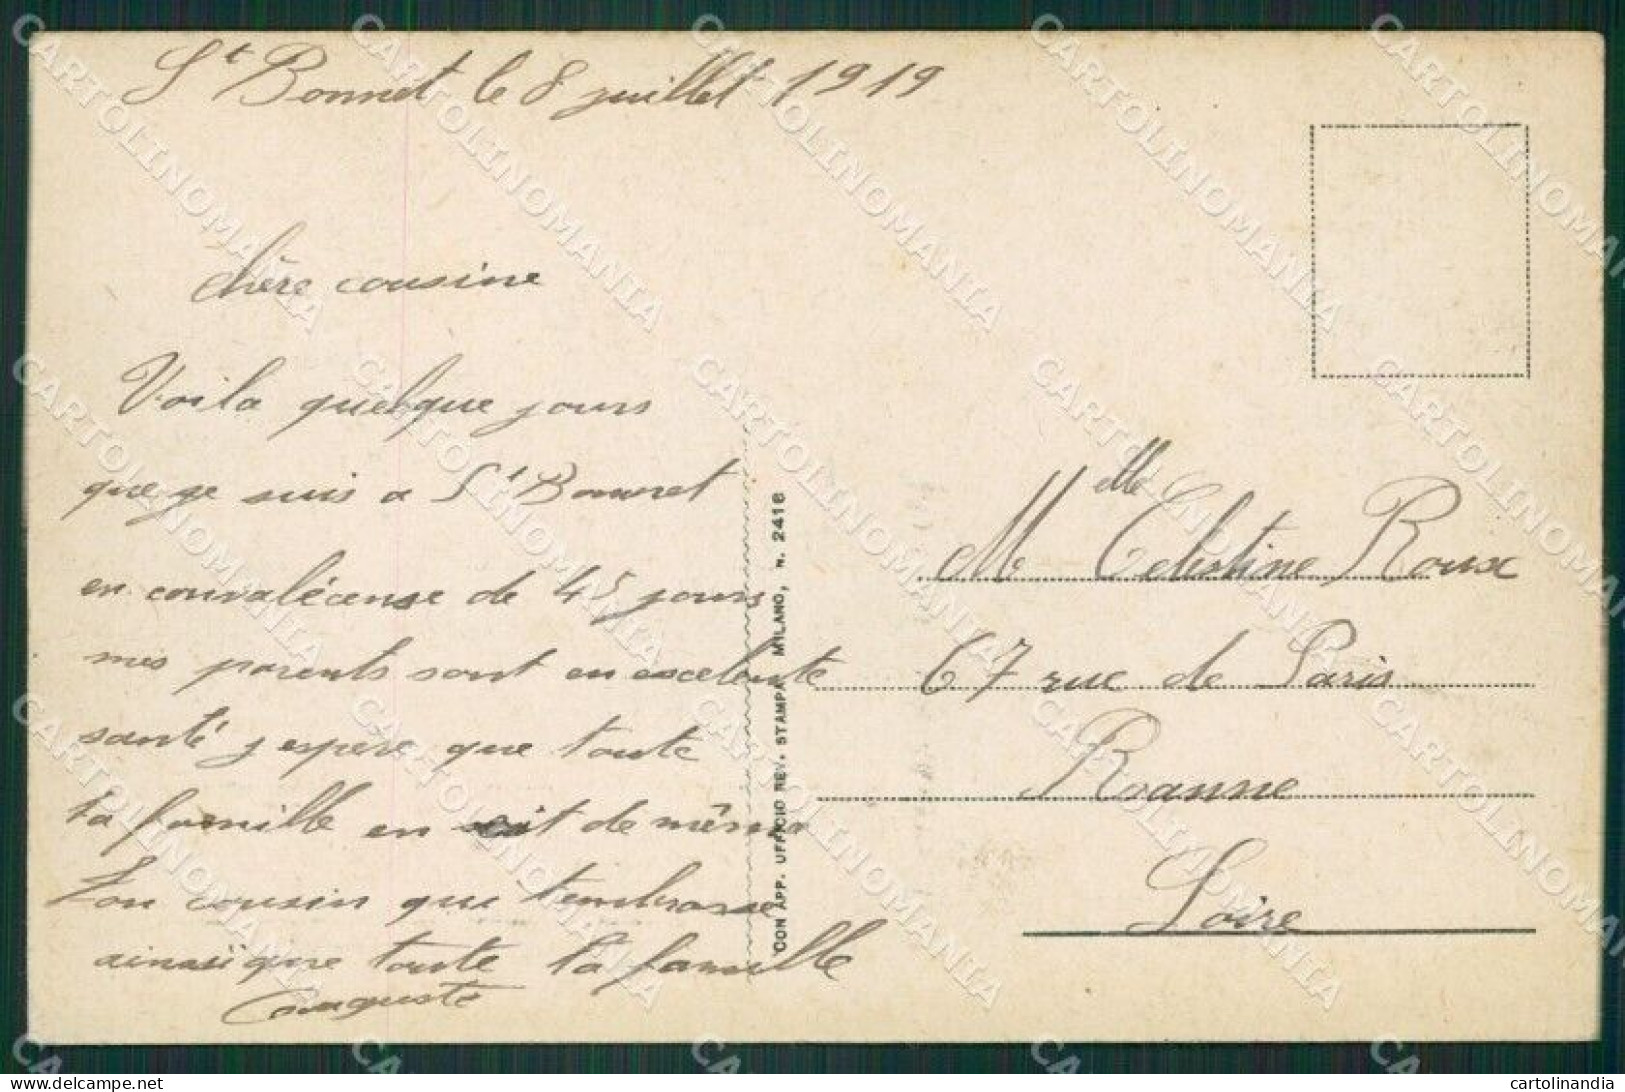 St Bonnet le 8 juillet 1919
chère cousine
Voila quelque jours
que je suis a St Bonnet
en convalécense de 45 jours
mes parents sont en excelente
santé j espere que toute
ta famille en soit de même
Ton cousin qui t'embrasse
ainsi que toute ta famille
auguste
CON APP. UFFICIO REV. STAMPA MILANO, N. 2416
Melle Celestine Roux
67 rue de Paris
Roanne
Loire
CARTOLINOMANIA
delcampe.net
cartolinandia